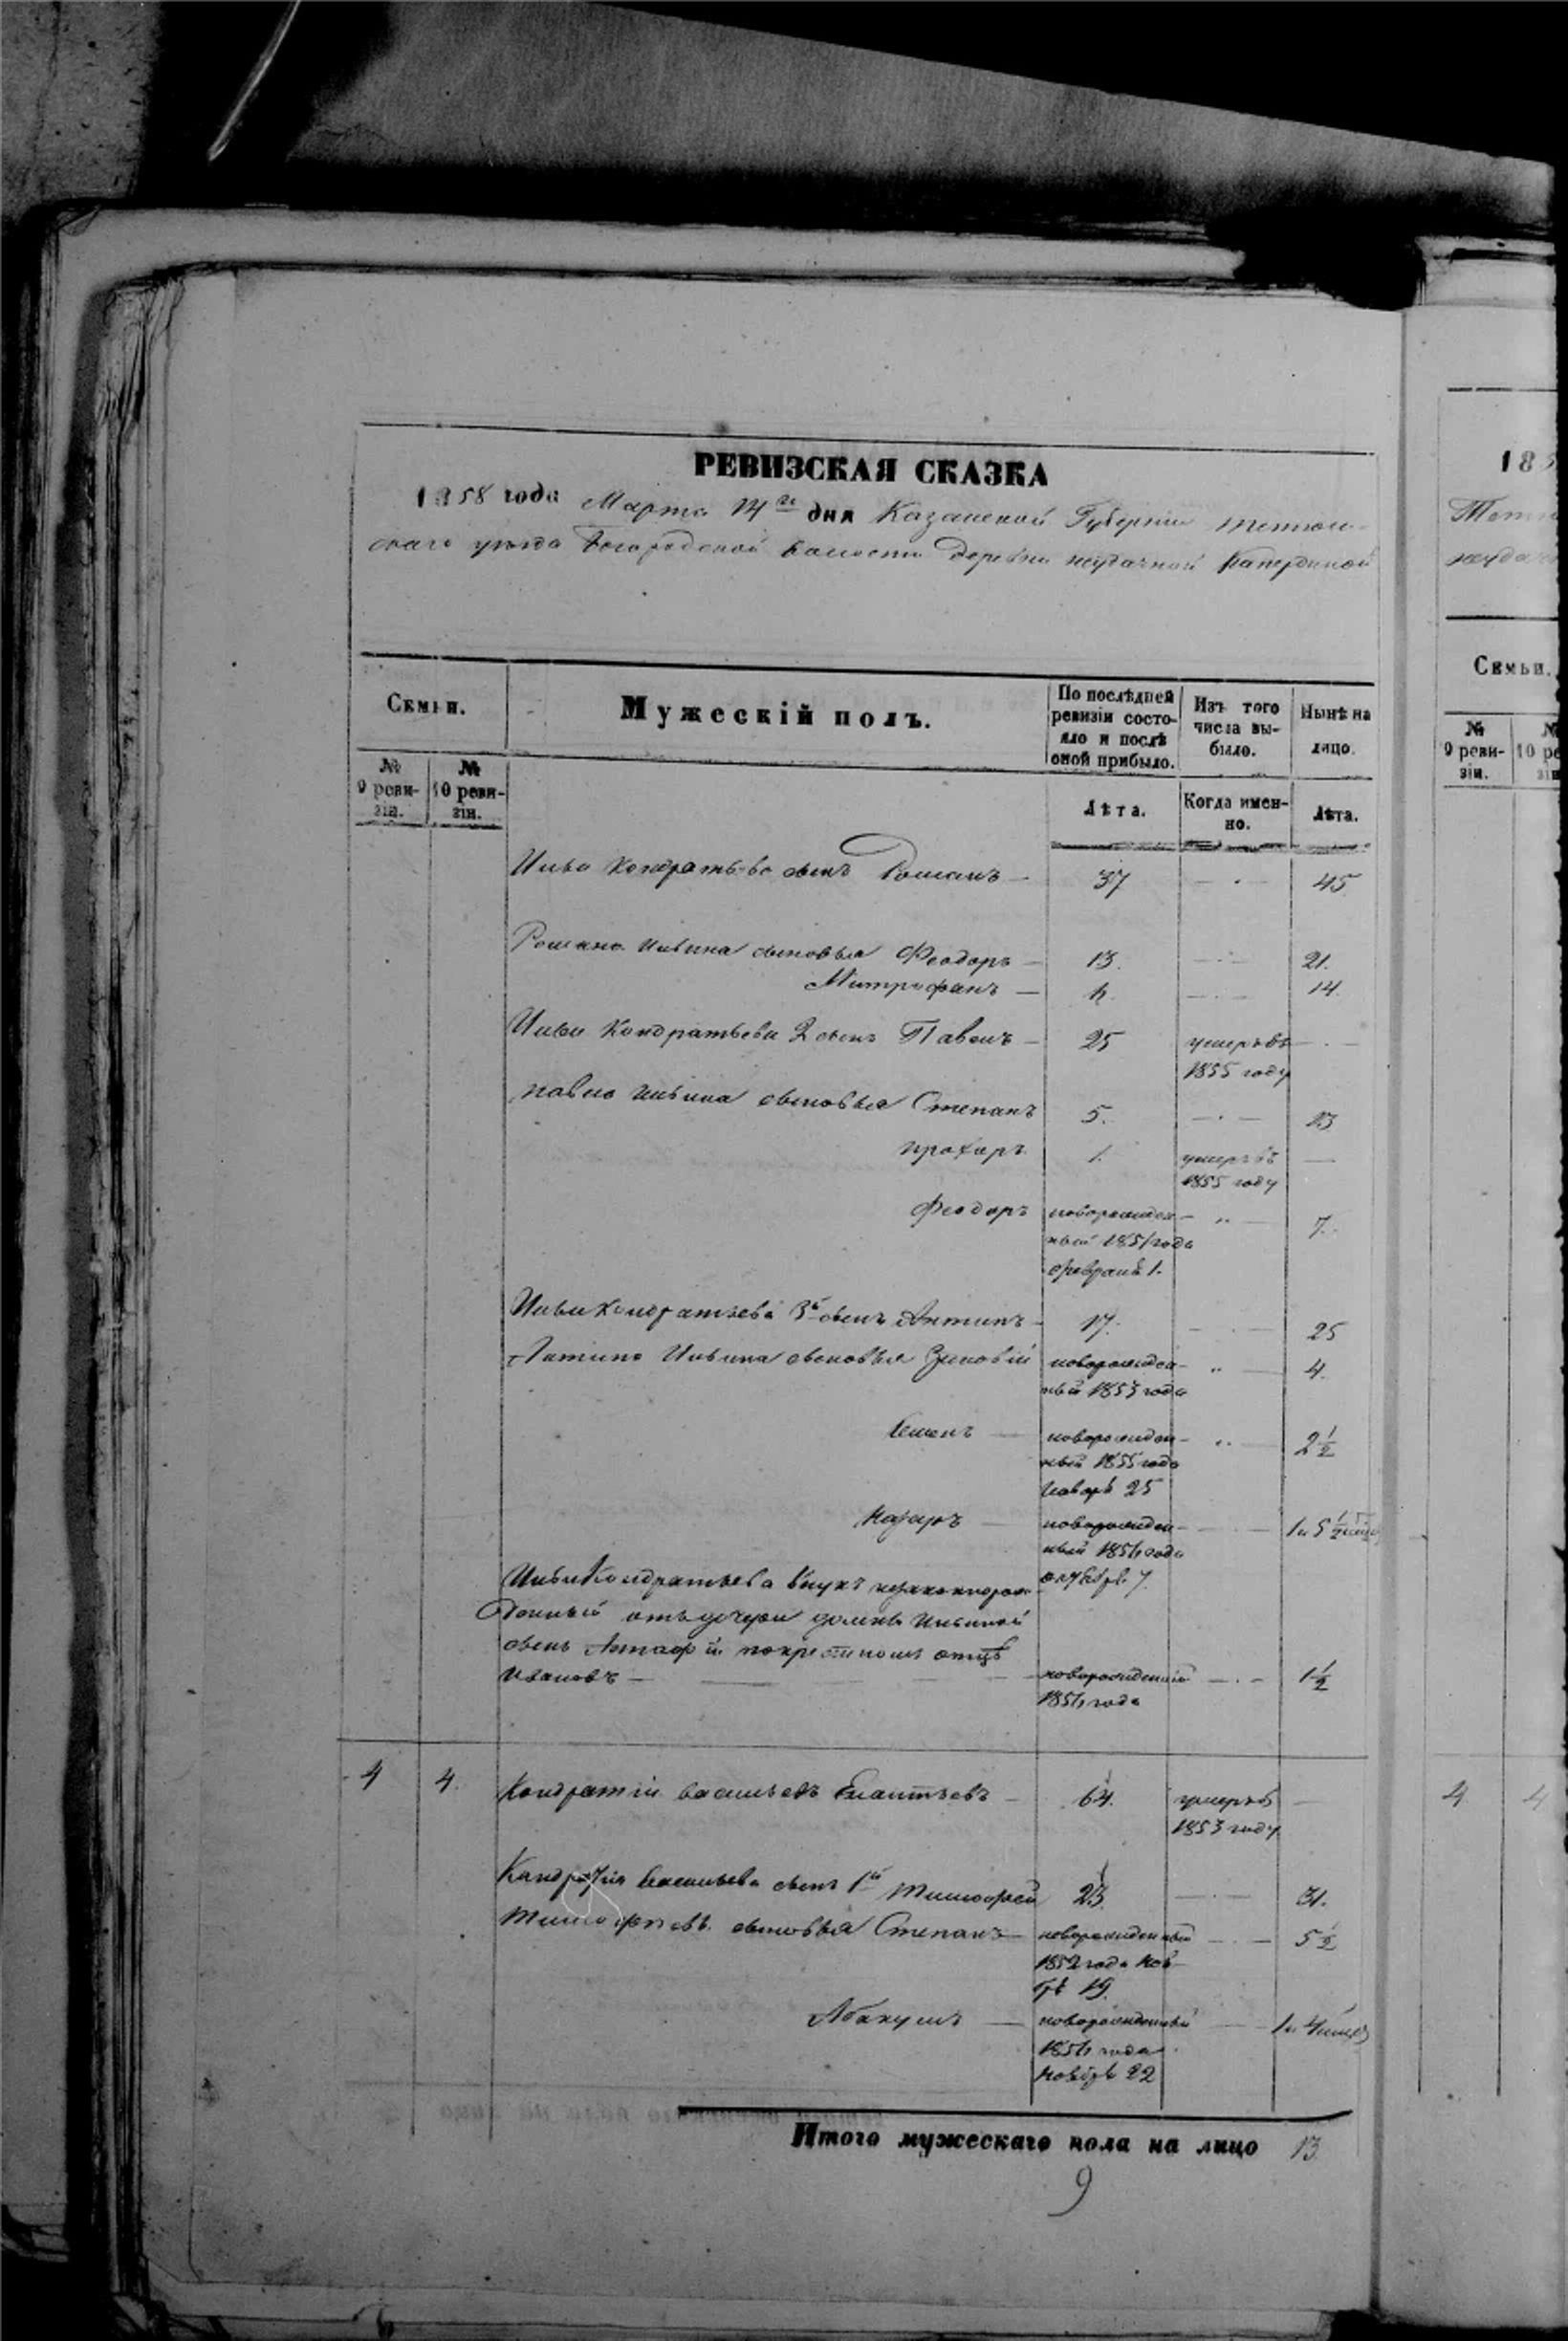 РЕВИЗСКАЯ СКАЗКА
1858 года Марта 14го дня Казанской Губернии тетюш-
скаго уезда Богородской волости деревни неудачной
Семьи.
Мужескій полъ.
По послѣдней ревизіи состо-яло и послѣ оной прибыло.
Изъ того числа вы-было.
Нынѣ на лицо.
№ 9 реви-зіи.
№ 10 реви-зіи.
Лѣта.
Когда имен-но.
Лѣта.
Ильи Кондратьева сынъ Романъ 37 45
Романа Ильина сыновья Феодоръ 13. 21.
Митрофанъ 14.
Ильи Кондратьева 2 сынъ Павелъ 25 умеръ въ
1855 году
павла ильина сыновья Степанъ 5. 13
прохоръ 1. умеръ въ
1855 году
феодоръ новорожден- 7.
ный 1851 года
февраля 1.
Ильи Кондратьева 3й сынъ Антипъ 17. 25
Антипа Ильина сыновья Зиновій новорожден- 4.
ный 1853 года
Семенъ новорожден- 2 1/2
ный 1855 года
25
назаръ новорожден- 1 и 5 1/2
ный 1856 года
октября 7.
Ильи Кондратьева внукъ незаконнорож-
денный отъ дочери домны Ильиной
сынъ покрестномъ отцѣ
Ивановъ новорожденный 1 1/2
1856 года
4 4. Кондратій васильевъ 64. умеръ въ
1853 году.
Кандратія Васильева сынъ 1й Тимофей 23. 31.
Тимофеевы сыновья Степанъ новорожденный 5 1/2
1852 года ноя-
бря 19.
Абакумъ новорожденный 1 и 4 месяц
1856 года
ноября 22
Итого мужескаго пола на лицо 13
9
185
неудачн
Семьи.
№ 9 реви-зіи.
№
10 ре
зіи
4 4